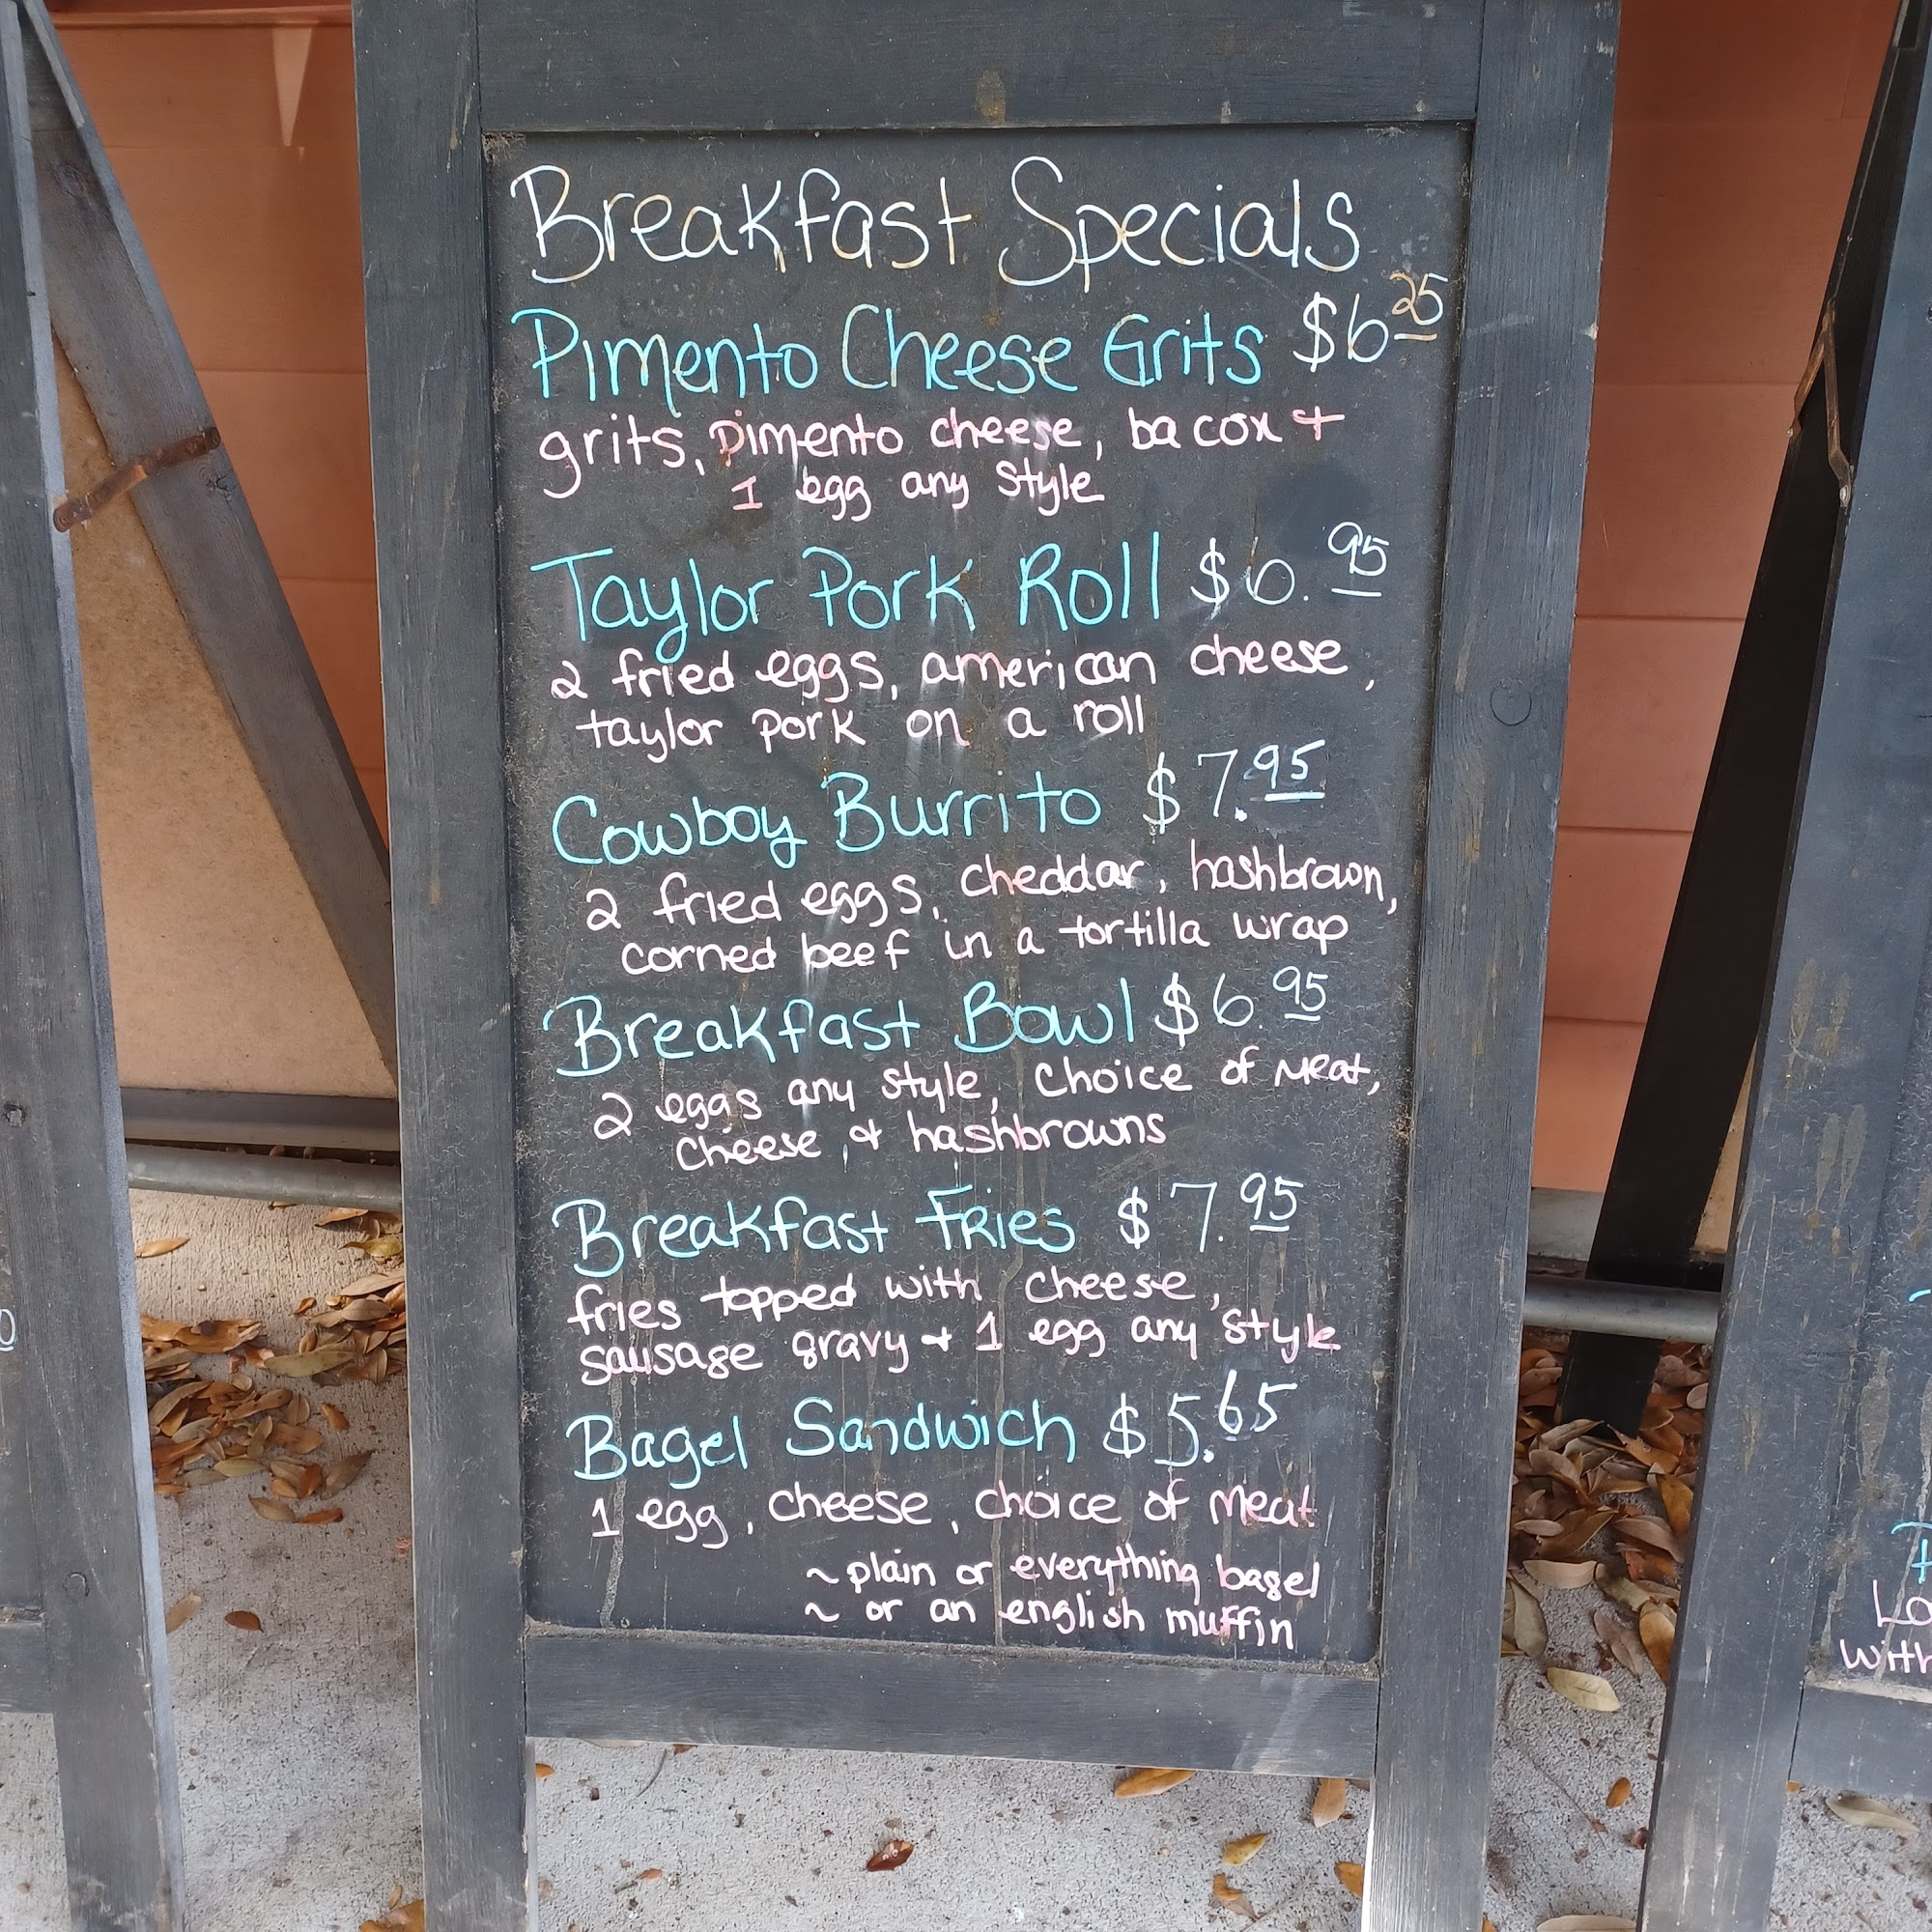 Breakfast Specials
Pimento Cheese Grits $6 25
grits, Pimento cheese, bacon +
1 egg any Style
Taylor Pork Roll $6. 95
2 fried eggs, american cheese,
taylor pork on a roll
Cowboy Burrito $7. 95
2 fried eggs, cheddar, hashbrown,
corned beef in a tortilla wrap
Breakfast Bowl $6. 95
2 eggs any Style, Choice of Meat,
Cheese, & hashbrowns
Breakfast Fries $7. 95
fries topped with cheese,
sausage gravy + 1 egg any style
Bagel Sandwich $5. 65
1 egg, cheese, choice of Meat
~ plain or everything bagel
~ or an english muffin